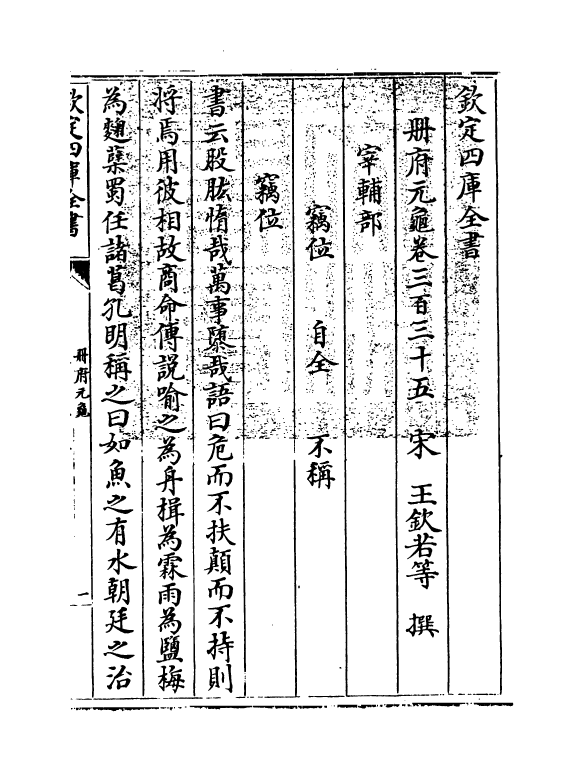 欽定四庫全書
冊府元龜卷三百三十五　宋　王欽若等　撰
宰輔部
竊位　自全　不稱
竊位
書云股肱惰哉萬事隳哉語曰危而不扶顛而不持則
將焉用彼相故商命傅説喻之為舟楫為霖雨為鹽梅
為麴糵蜀任諸葛孔明稱之曰如魚之有水朝廷之治
欽定四庫全書
冊府元龜
一